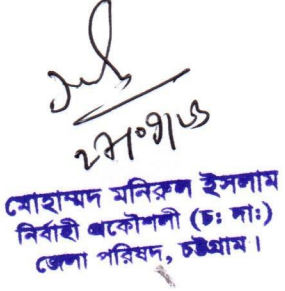 মোহাম্মদ মনিরুল ইসলাম
নির্বাহী প্রকৌশলী (চঃ দাঃ)
জেলা পরিষদ, চট্টগ্রাম।